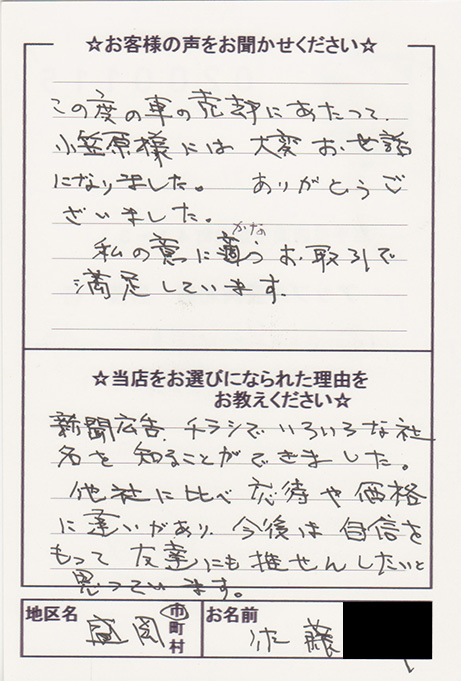 ☆お客様の声をお聞かせください☆
この度の車の売却にあたって、
小笠原様には 大変 お世話
になりました。 ありがとうご
ざいました。
かな
私の意に適う お取引で
満足しています。
☆当店をお選びになられた理由を
お教えください☆
新聞広告、チラシで いろいろな社
名を 知ることができました。
他社に比べ 応待や価格
に違いがあり、今後は 自信を
もって 友達にも推せんしたいと
思っています。
地区名 盛岡 市町村 お名前
藤